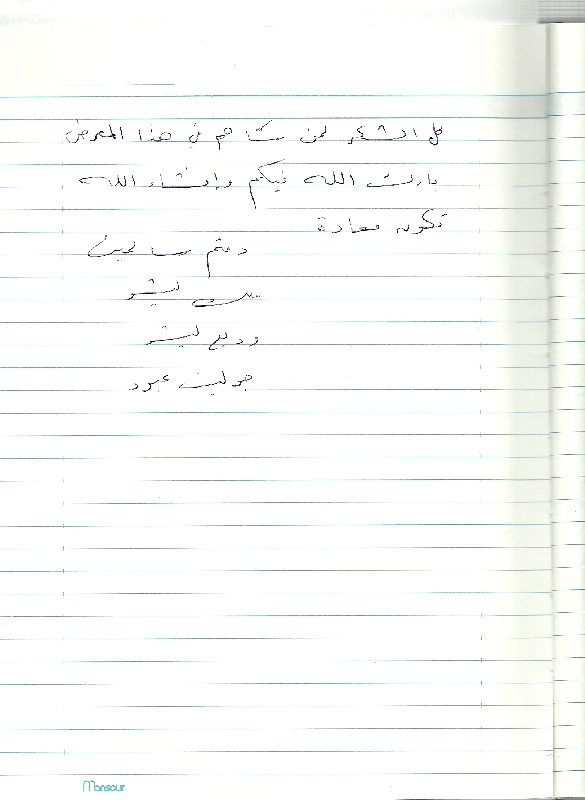 كل الشكر لمن ساهم في هذا المعرض
بارك الله فيكم وإنشاء الله
تكون معادة
دمتم سالمين
ليشو
وديع ليشو
جوليت عبود
Mansour